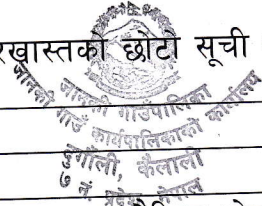 रखास्तको छोटो सूची
जानकी गाउँपालिका
जानकी गाउँ कार्यपालिकाको कार्यालय
डुगौली, कैलाली
७ नं. प्रदेश नेपाल